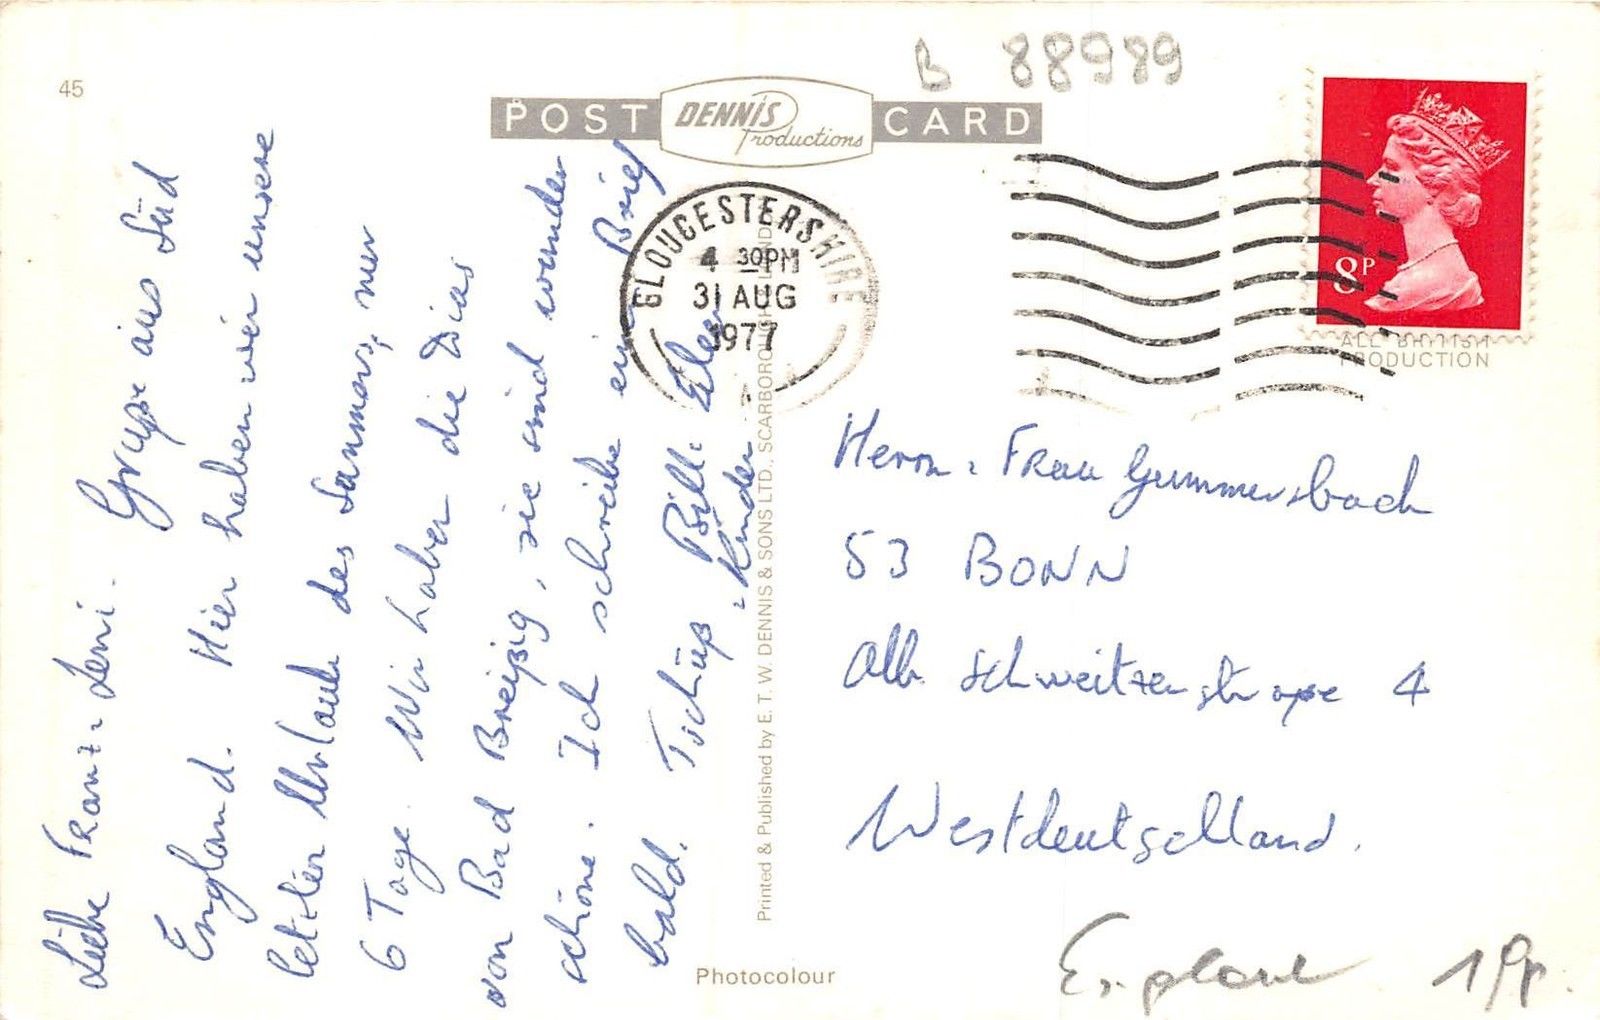 45
B 88989
POST DENNIS Productions CARD
GLOUCESTERSHIRE
4 30PM
31 AUG
1977
8P
ALL BRITISH
PRODUCTION
Liebe Franz - Leni. Grüße aus Süd
England. Hier haben wir unsere
letzten Urlaub des Sommers, nur
6 Tage. Wir haben die Dias
von Bad Breißig, sie sind wunder
schöne. Ich schreibe einen Brief
bald. Tschüß Bill: Elen
Kinder
Printed & Published by E. T. W. DENNIS & SONS LTD., SCARBOROUGH
Herrn: Frau Gummersbach
53 BONN
Alb. Schweitzer straße 4
Westdeutschland.
Photocolour
England 1